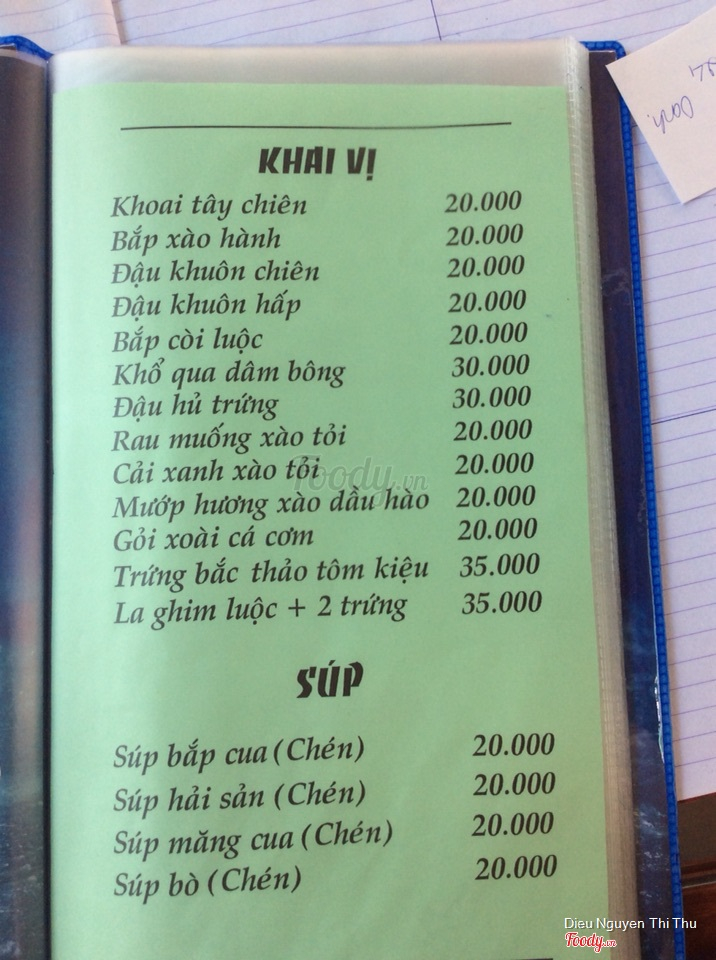 KHAI VỊ
Khoai tây chiên 20.000
Bắp xào hành 20.000
Đậu khuôn chiên 20.000
Đậu khuôn hấp 20.000
Bắp còi luộc 20.000
Khổ qua dâm bông 30.000
Đậu hủ trứng 30.000
Rau muống xào tỏi 20.000
Cải xanh xào tỏi 20.000
Mướp hương xào dầu hào 20.000
Gỏi xoài cá cơm 20.000
Trứng bắc thảo tôm kiệu 35.000
La ghim luộc + 2 trứng 35.000
SÚP
Súp bắp cua (Chén) 20.000
Súp hải sản (Chén) 20.000
Súp măng cua (Chén) 20.000
Súp bò (Chén) 20.000
Foody.vn
Dieu Nguyen Thi Thu
Foody.vn